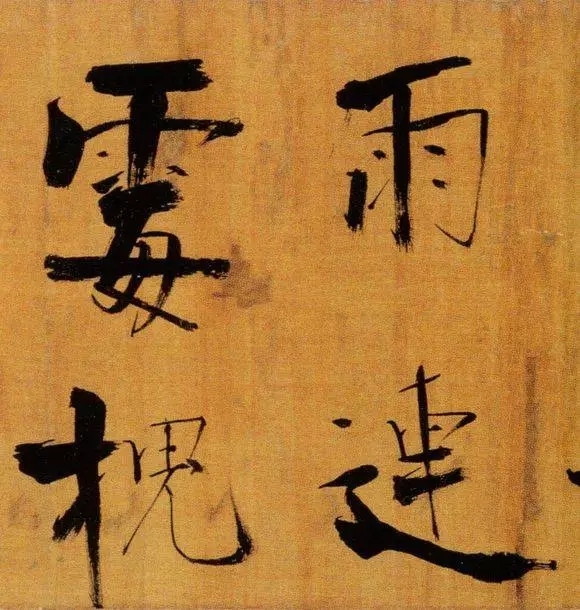 雨連
霉槐